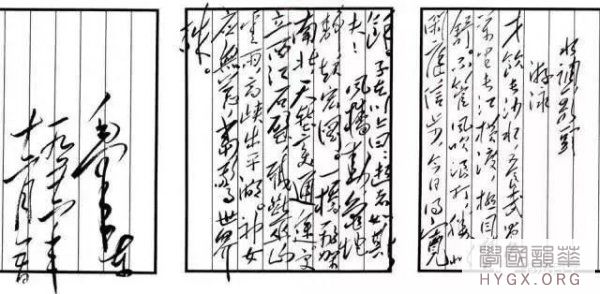 水调歌头
游泳
才饮长沙水,又食武昌
鱼。万里长江横渡,极目楚天
舒。不管风吹浪打,胜似
闲庭信步,今日得宽
馀。子在川上曰:逝者如斯
夫!风樯动,龟蛇
静,起宏图。一桥飞架
南北,天堑变通途。更
立西江石壁,截断巫山
云雨,高峡出平湖。神女
应无恙,当惊世界
殊。
毛泽东
一九五六年
十二月五日
學國韻華
HYGX.ORG